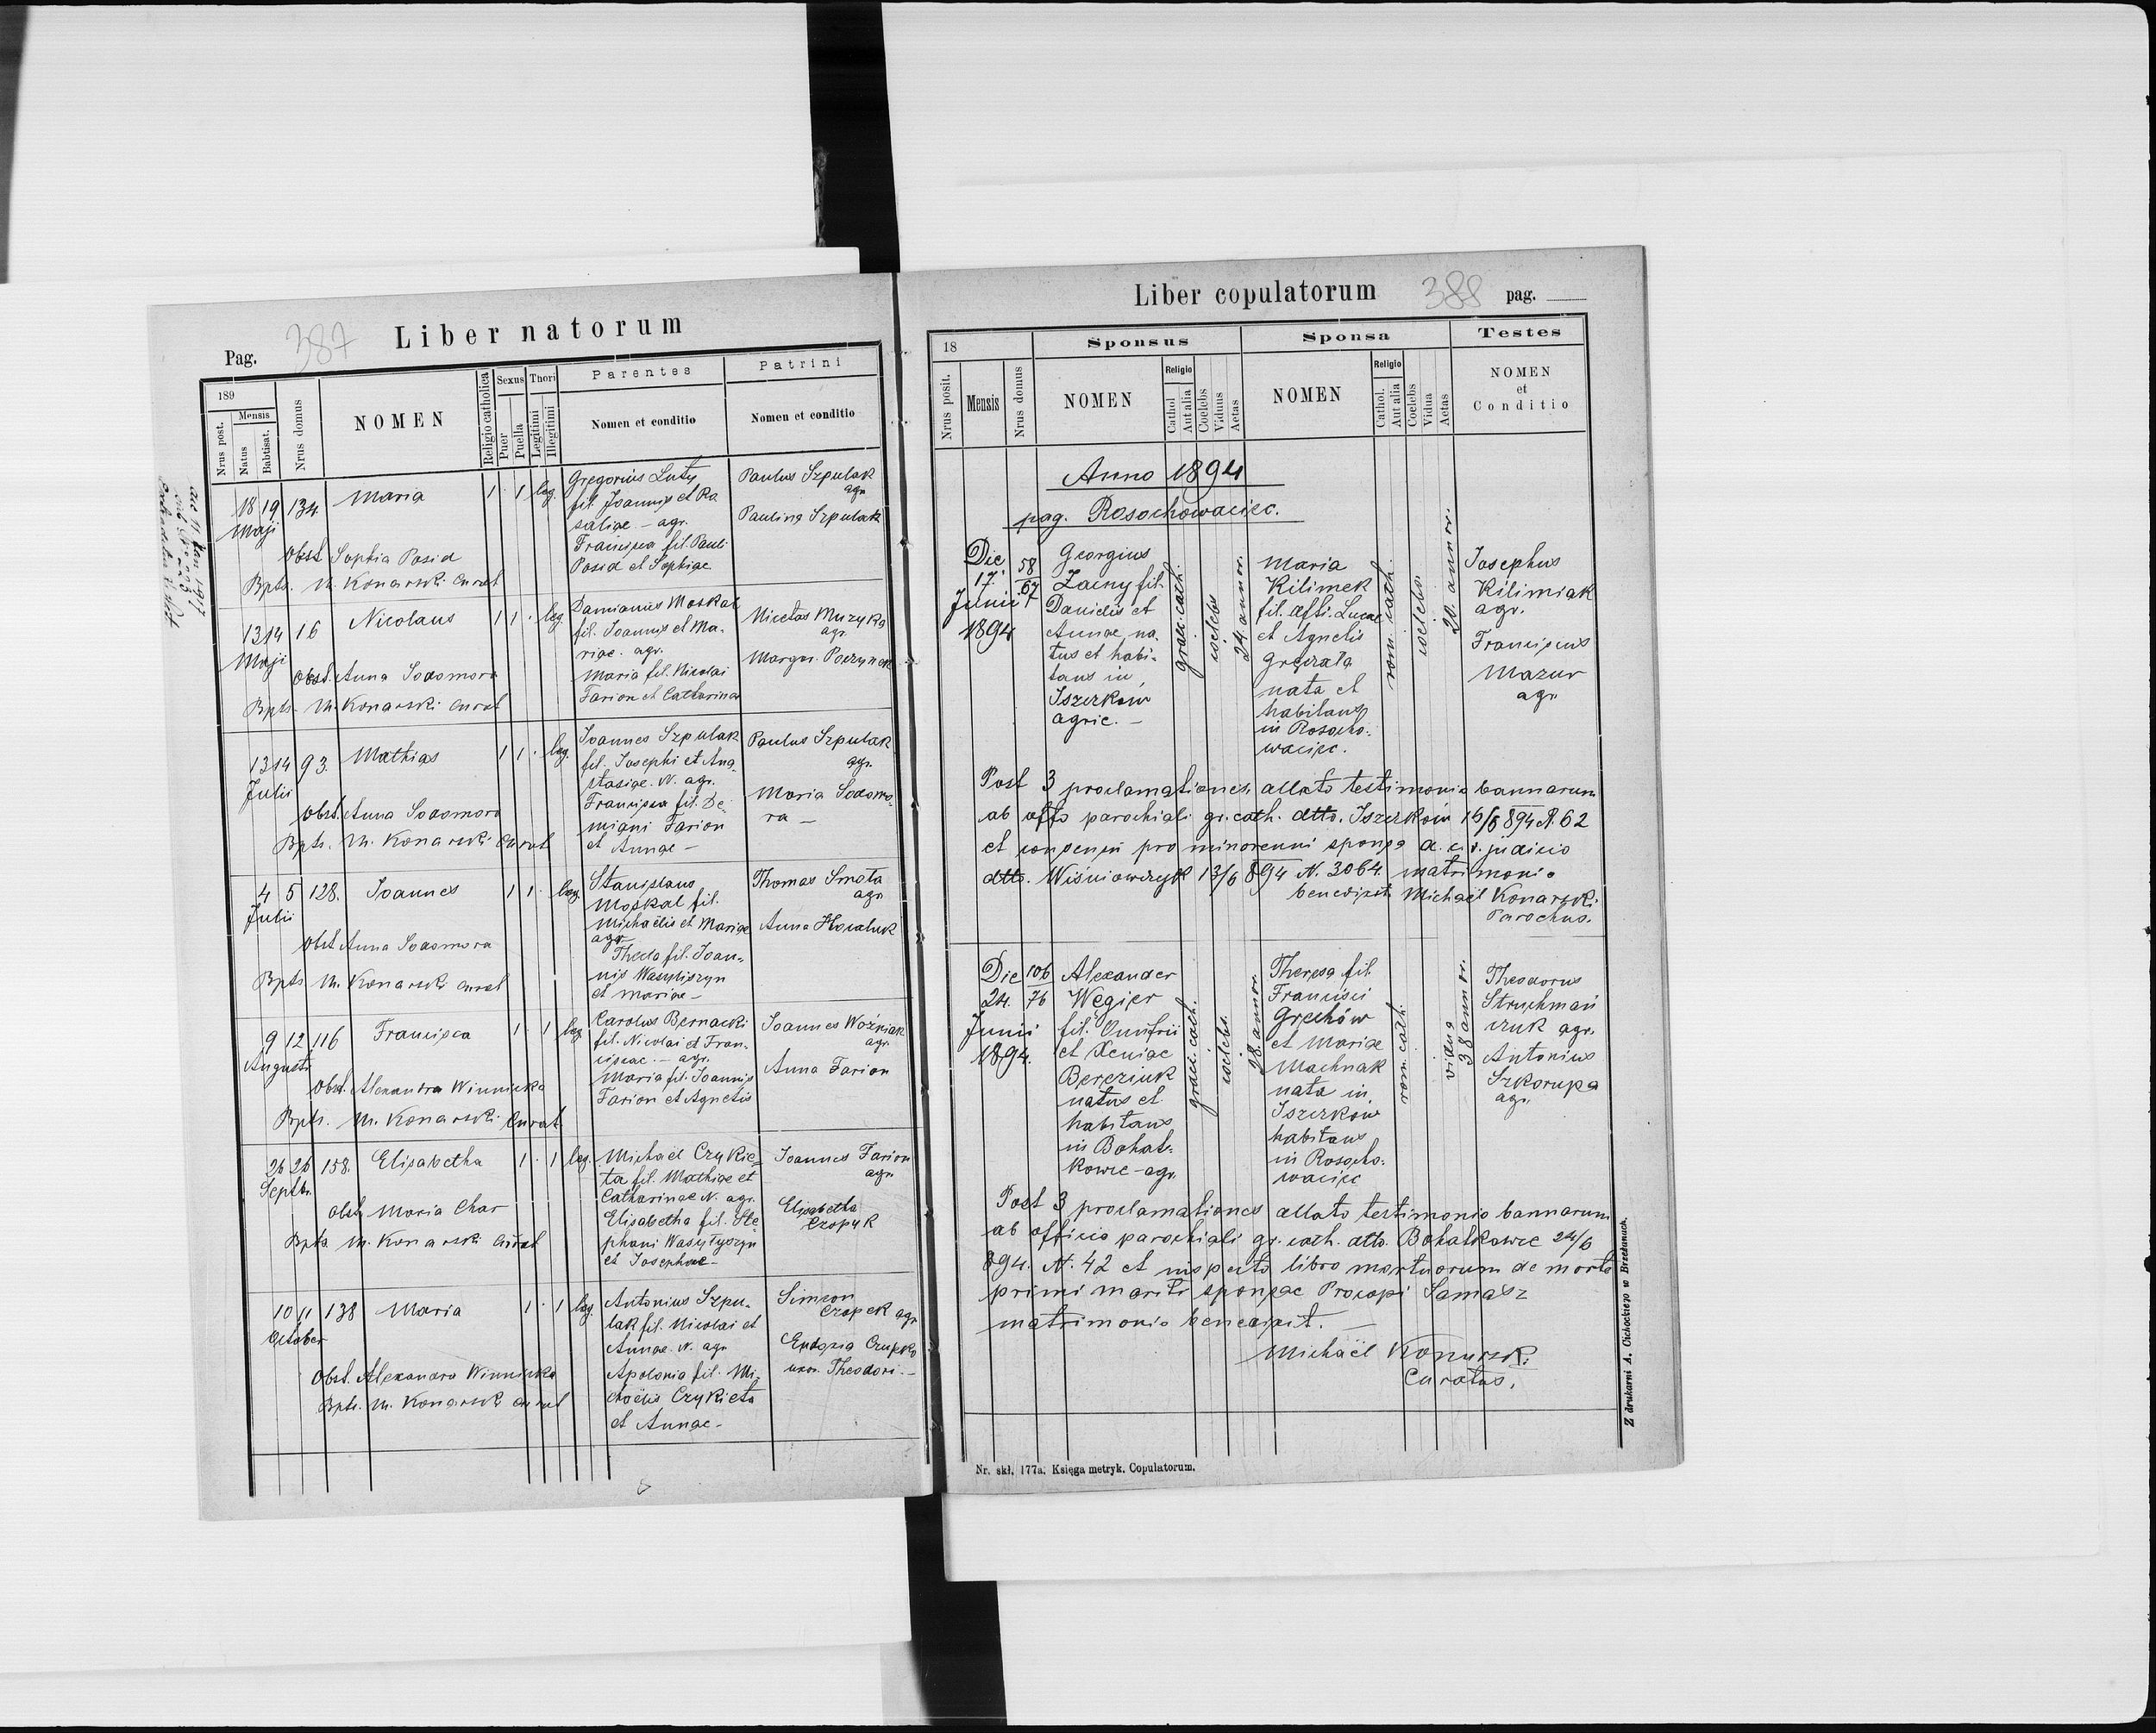 Pag. 387 Liber natorum
189
Mensis
Nrus post.
Natus
Babtisat.
Nrus domus
NOMEN
Religio catholica
Sexus
Puer
Puella
Thori
Legitimi
Illegitimi
Parentes
Nomen et conditio
Patrini
Nomen et conditio
18 19 134. Maria 1 · 1 leg.
Maji
Obst. Sophia Posid
Bpts. M. Konarski Curat
Gregorius Luty
fil. Joannis et Ro
saliae - agr.
Francisca fil. Pauli
Posid et Sophiae
Paulus Szpulak
agr.
Paulina Szpulak
13 14 16 Nicolaus 1 1 · leg.
Maji
Obst. Anna Sodomora
Bpts. M. Konarski Curat
Damianus Moskal
fil. Joannis et Ma-
riae. agr.
Maria fil. Nicolai
Farion et Catharinae
Nicetas Muzyka
agr.
13 14 93. Mathias 1 1 · leg.
Julii
Obst. Anna Sodomora
Bpts. M. Konarski Curat
Joannes Szpulak
fil. Josephi et Ana-
stasiae. N. agr.
Francisca fil. De-
miani Farion
et Annae -
Paulus Szpulak
agr.
Maria Sodomo-
ra -
4 5 128. Joannes 1 1 · leg.
Julii
Obst. Anna Sodomora
Bpts. M. Konarski Curat
Stanislaus
Moskal fil.
Michaëlis et Mariae
agr.
Thecla fil. Joan-
nis Wasyliszyn
et Mariae -
Thomas Smota
agr.
9 12 116 Francisca 1 · 1 leg.
Augusti
Obst. Alexandra Winnicka
Bpts. M. Konarski Curat
Carolus Bernacki
fil. Nicolai et Fran-
ciscae. - agr.
Maria fil. Joannis
Farion et Agnetis
Joannes Woźniak
agr.
Anna Farion
26 26 158. Elisabetha 1 · 1 leg.
Septbr.
Obst. Maria Char
Bpts. M. Konarski Curat
Michael Czykie-
ta fil. Mathiae et
Catharinae N. agr.
Elisabetha fil. Ste-
phani Wasyłyszyn
et Josephae -
Joannes Farion
agr.
Elisabetha
Czopyk
10 11 138 Maria 1 · 1 leg.
October
Obst. Alexandra Winnicka
Bpts. M. Konarski Curat
Antonius Szpu-
lak fil. Nicolai et
Annae. N. agr.
Apolonia fil. Mi-
chaëlis Czykieta
et Annae -
Simeon
Czopek agr.
uxor. Theodori. -
Liber copulatorum 388 pag.
18
Nrus posit.
Mensis
Nrus domus
Sponsus
NOMEN
Religio
Cathol
Aut alia
Coelebs
Viduus
Aetas
Sponsa
NOMEN
Religio
Cathol.
Aut alia
Coelebs
Vidua
Aetas
Testes
NOMEN
et
Conditio
Anno 1894
pag. Rosochowaciec.
Die
17.
Junii
1894
58
67
Georgius
Zacny fil.
Danielis et
Annae, na-
tus et habi-
tans in
Iszczków
agric. -
graec. cath.
coelebs
24 annor.
Maria
Kilimek
fil. Lucae
et Agnetis
nata et
habitans
in Rosocho-
waciec.
rom. cath.
coelebs.
20. annor.
Josephus
Kilimiak
agr.
Franciscus
Mazur
agr.
Post 3 proclamationes, allato testimonio bannarum
ab offo parochiali gr. cath. dtto. Iszczków 16/6 894 N. 62
et consensu pro minorenni sponsa a c. r. judicio
dtto. Wiśniowczyk 13/6 894 N. 3064. matrimonio
benedixit Michaël Konarski
Parochus.
Die
24.
Junii
1894.
106
76
Alexander
Węgier
fil. Onufrii
et Xeniae
Bereziuk
natus et
habitans
in Bohat-
kowce - agr.
graec. cath.
coelebs.
28. annor.
Theresa fil.
Francisci
Grechów
et Mariae
Machnak
nata in
Iszczków
habitans
in Rosocho-
waciec
rom. cath.
vidua
38 annor.
Theodorus
Struchmań
czuk agr.
Antonius
Szkorupa
agr.
Post 3 proclamationes allato testimonio bannarum
ab officio parochiali gr. cath. dtto. Bohatkowce 24/6
894. N. 42 et inspecto libro mortuorum de morte
primi mariti sponsae Procopi Samasz
matrimonio benedixit. -
Michaël Konarski
Curatus.
Nr. skł. 177a. Księga metryk. Copulatorum.
Z drukarni A. Cichockiego w Brzeżanach.